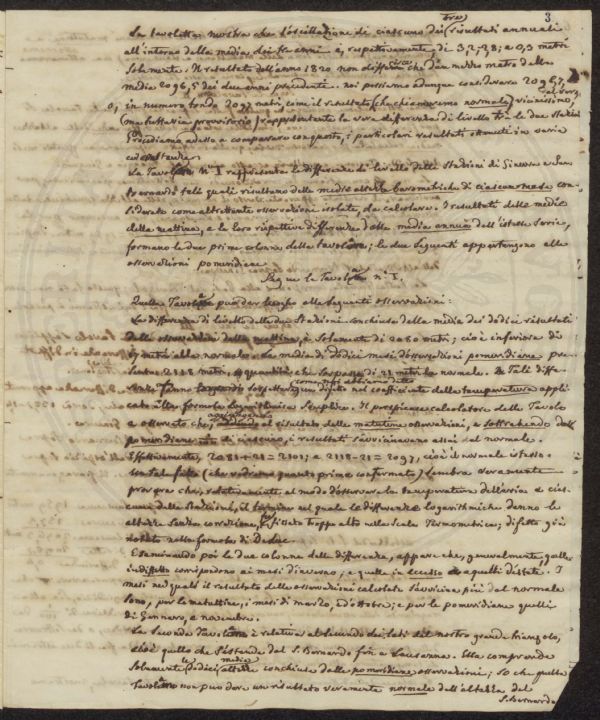 3
tre
La tavoletta mostra che l'oscillazione di ciascuno dei risultati annuali
all'interno della media dei tre anni è, respettivamente, di 3,2; 2,8; a 0,3 metri
solamente. Il resultato dell'anno 1820 non differisce che d'un mezzo metro dalla
media 2096,5 dei due anni precedente. noi possiamo adunque considerare 2096,7,
o, in numero tondo 2097 metri, come il resultato (che chiameremo normale) vicinissimo,
tuttavia provvisorio rappresentante la vera differenza di livello tra le due stazioni
Procediamo adesso a comparare con questo, i particolari resultati ottenuti in varie
circostanze.
La Tavola Nº I rappresenta le differenze di livello delle Stazioni di Ginevra e San
Bernardo tali quali risultano delle medie altezze barometriche di ciascun mese con-
siderate come altrettante osservazioni isolate, da calcolare. I resultati delle medie
della mattina, e le loro rispettive differenze dalla media annua dell'istessa serie,
formano le due prime colonne della tavola; le due seguenti appartengono alle
osservazioni pomeridiane
Segue la Tavola nº I.
Quella Tavola può dar luogo alle seguenti osservazioni:
La differenza di livello delle due Stazioni conchiusa della media dei dodici risultati
delle osservazioni della mattina, è solamente di 2080 metri; cioè inferiore di
metri alla normale. La media di dodici mesi d'osservazioni pomeridiane pre-
senta 2118 metri, quantità che sorpassa di 21 metri la normale. Tali diffe-
come noi abbiamo detto
renze fanno sospettare un difetto nel coefficiente della temperatura appli-
cato alla formula logaritmica semplice. Il calcolatore delle Tavole
aggiungendo
a osservato che, al risultato delle matutine osservazioni, e sottraendo dal
pomeridiane di ciascuno, i resultati s'avvicinavano assai al normale.
Effettivamente, 2081+21=2101; e 2118-21=2097, cioè il normale istesso.
Un tal fatto (che vedremo quanto prima confermato) sembra veramente
provare che, relativamente al modo d'osservare la temperatura dell'aria a cias-
cuna delle Stazioni, il termine nel quale le differenze logaritmiche danno le
altezze senza correzione, è fissato troppo alto nella scala termometrica; difetto già
notato nella formula di Deluc.
Esaminando poi le due colonne delle differenze, appare che, generalmente quelle
in diffetto corrispondono ai mesi d'inverno, e quelle in eccesso a quelli d'estate. I
mesi nei quali il resultato delle osservazioni calcolate s'avvicina più dal normale
sono, per le matuttine, i mesi di marzo, e d'ottobre; e per le pomeridiane quelli
di Gennaro, e novembre.
La seconda Tavola è relativa al secondo dei lati del nostro grande triangolo,
cioè quello che s'estende dal S. Bernardo fin a Lausanna. Ella comprende
medie
solamente dodici altezze conchiuse dalle pomeridiane osservazioni; so che quella
Tavola non può dare un risultato veramente normale dell'altezza del
S. Bernardo